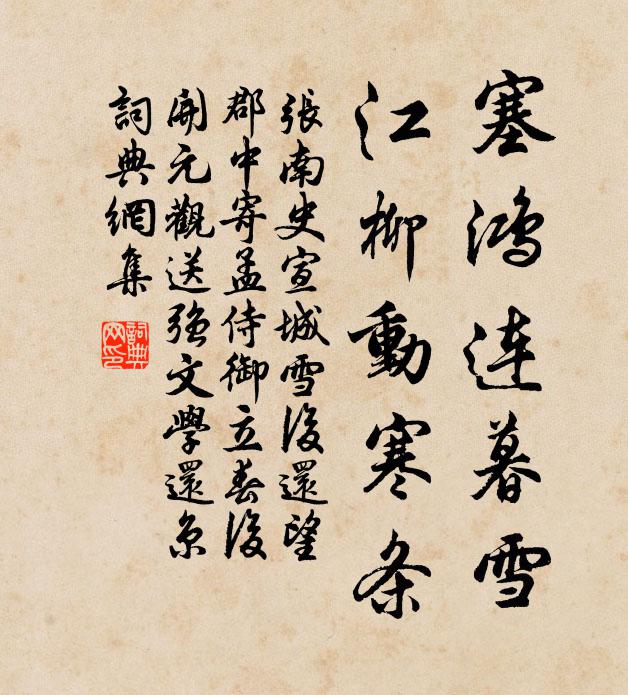 塞鸿连暮雪
江柳动寒条
張南史宣城雪後還望
郡中寄孟侍御立春後
開元觀送強文學還京
詞典網集
詞典
网印